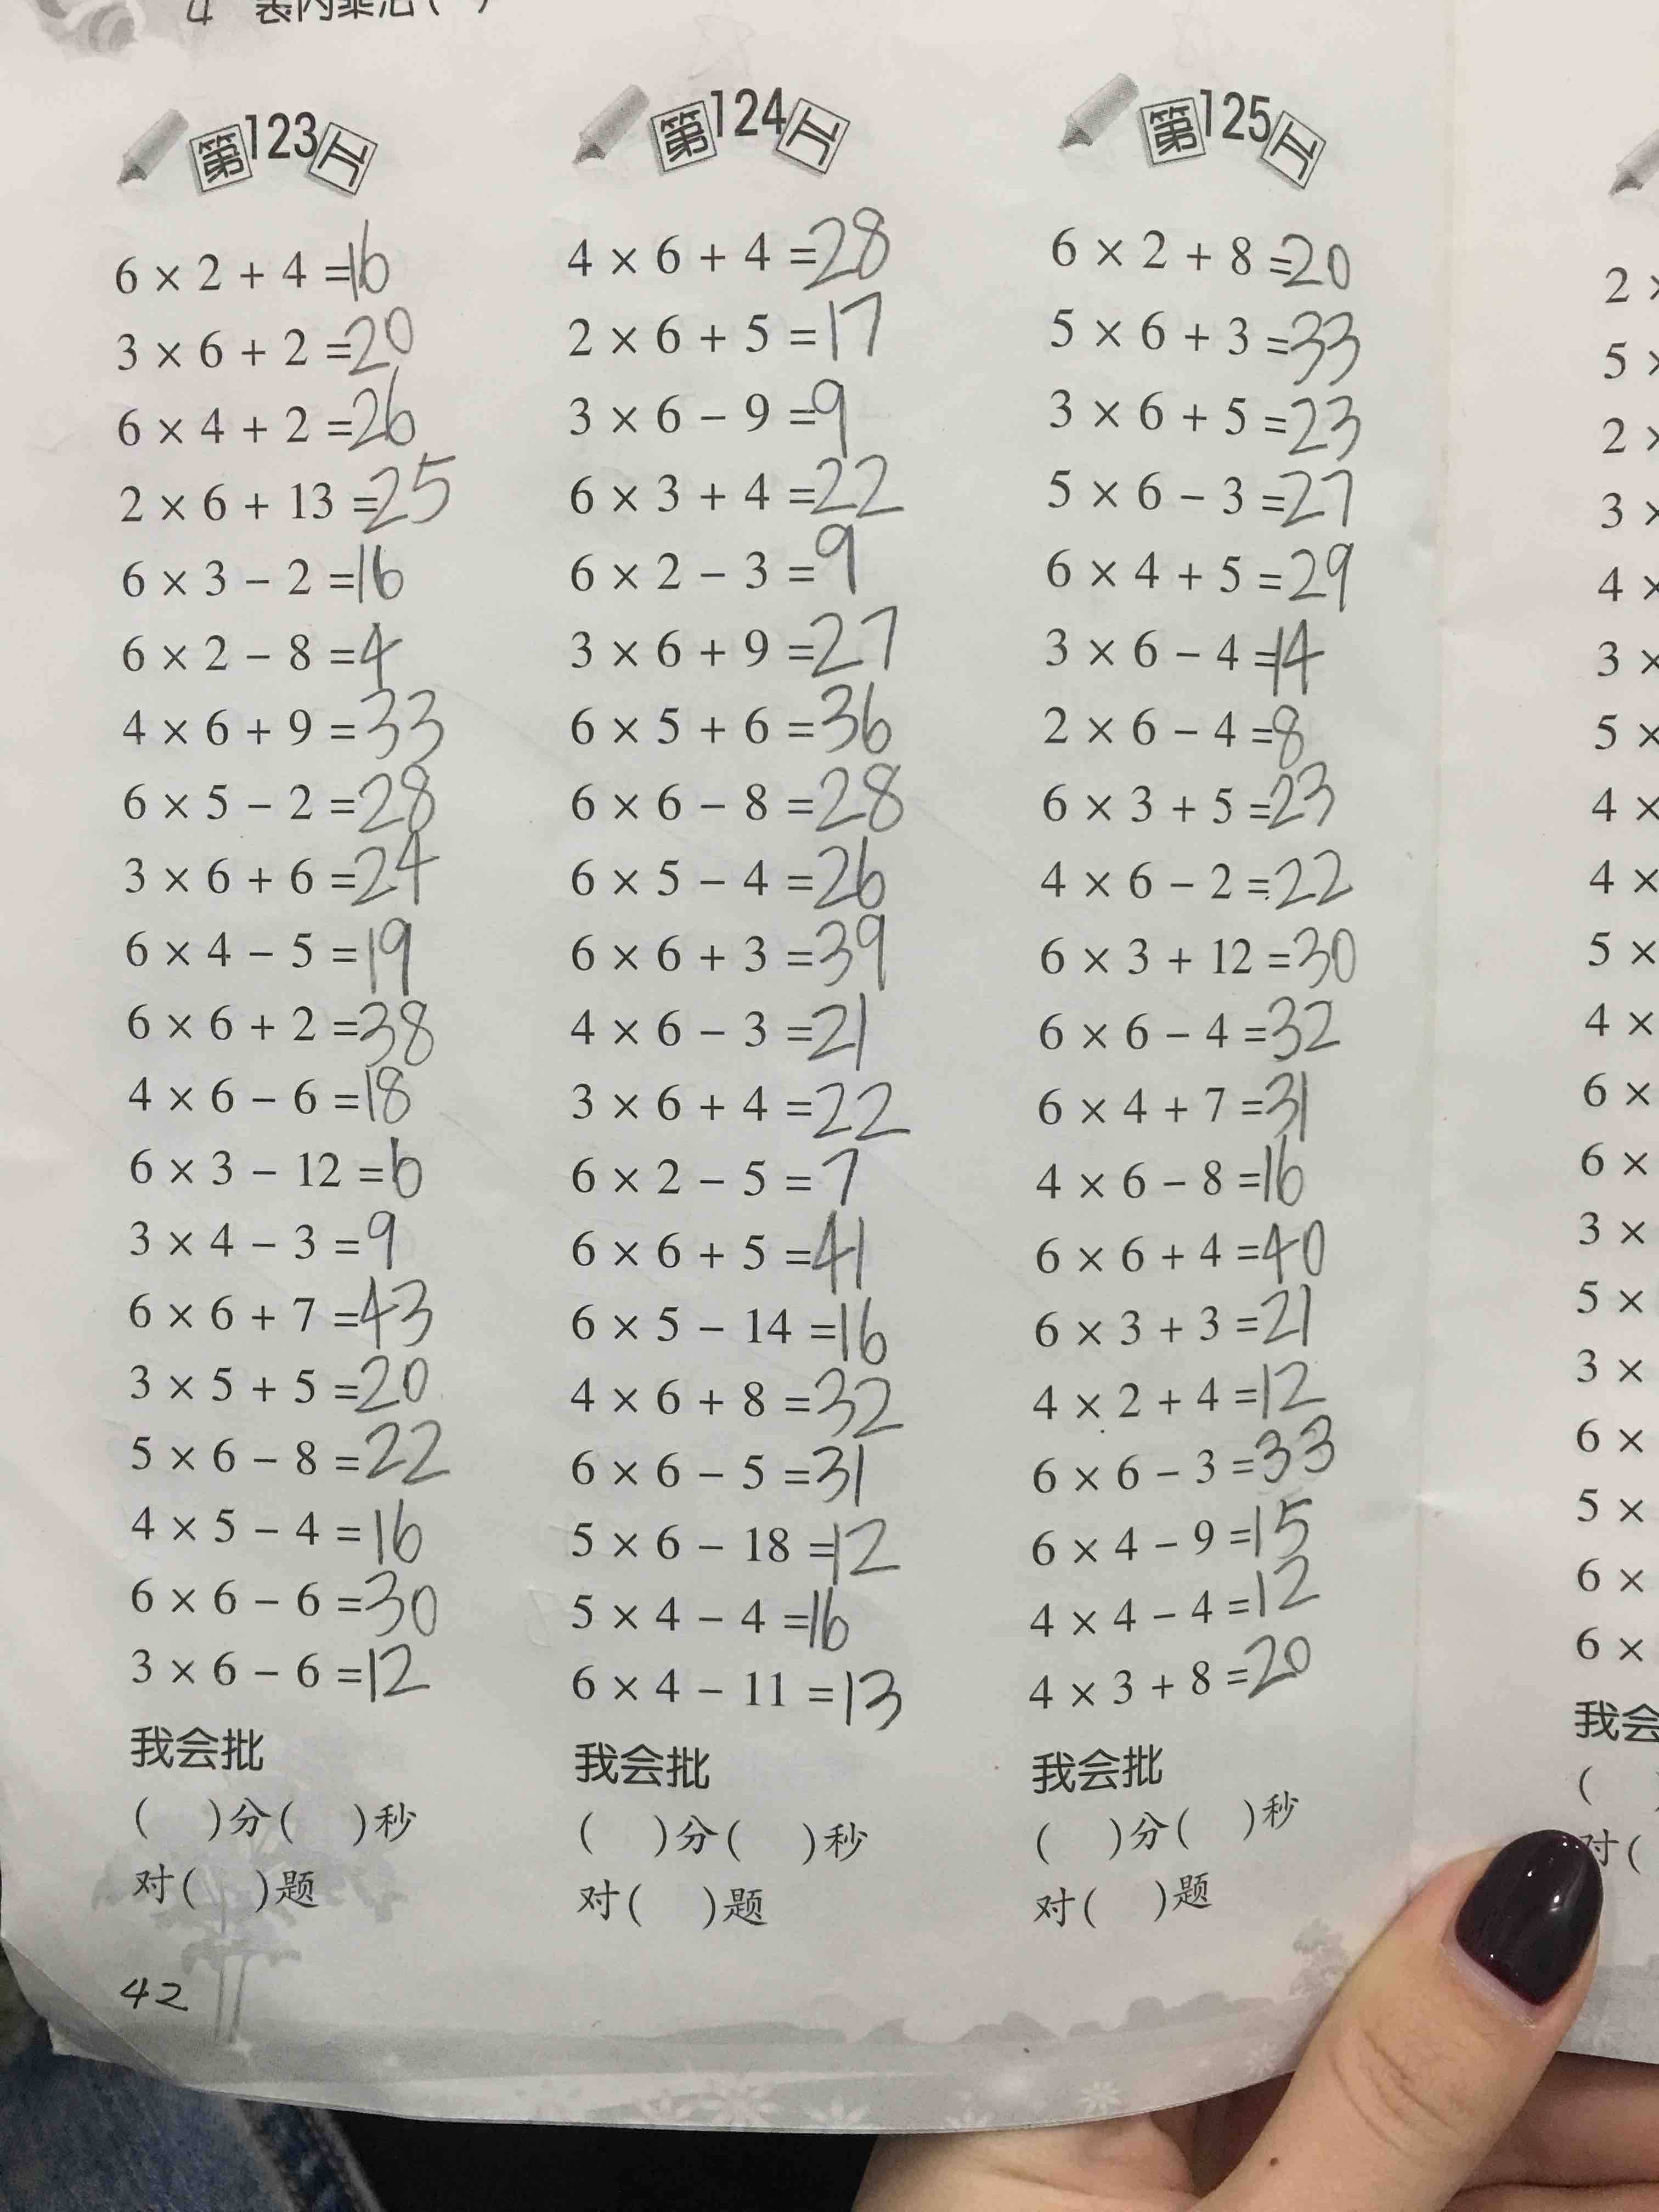 4 表内乘法( )
第123天
6 × 2 + 4 =16
3 × 6 + 2 =20
6 × 4 + 2 =26
2 × 6 + 13 =25
6 × 3 - 2 =16
6 × 2 - 8 =4
4 × 6 + 9 =33
6 × 5 - 2 =28
3 × 6 + 6 =24
6 × 4 - 5 =19
6 × 6 + 2 =38
4 × 6 - 6 =18
6 × 3 - 12 =6
3 × 4 - 3 =9
6 × 6 + 7 =43
3 × 5 + 5 =20
5 × 6 - 8 =22
4 × 5 - 4 =16
6 × 6 - 6 =30
3 × 6 - 6 =12
我会批
( )分( )秒
对( )题
42
第124天
4 × 6 + 4 =28
2 × 6 + 5 =17
3 × 6 - 9 =9
6 × 3 + 4 =22
6 × 2 - 3 =9
3 × 6 + 9 =27
6 × 5 + 6 =36
6 × 6 - 8 =28
6 × 5 - 4 =26
6 × 6 + 3 =39
4 × 6 - 3 =21
3 × 6 + 4 =22
6 × 2 - 5 =7
6 × 6 + 5 =41
6 × 5 - 14 =16
4 × 6 + 8 =32
6 × 6 - 5 =31
5 × 6 - 18 =12
5 × 4 - 4 =16
6 × 4 - 11 =13
我会批
( )分( )秒
对( )题
第125天
6 × 2 + 8 =20
5 × 6 + 3 =33
3 × 6 + 5 =23
5 × 6 - 3 =27
6 × 4 + 5 =29
3 × 6 - 4 =14
2 × 6 - 4 =8
6 × 3 + 5 =23
4 × 6 - 2 =22
6 × 3 + 12 =30
6 × 6 - 4 =32
6 × 4 + 7 =31
4 × 6 - 8 =16
6 × 6 + 4 =40
6 × 3 + 3 =21
4 × 2 + 4 =12
6 × 6 - 3 =33
6 × 4 - 9 =15
4 × 4 - 4 =12
4 × 3 + 8 =20
我会批
( )分( )秒
对( )题
2 ×
5 ×
2 ×
3 ×
4 ×
3 ×
5 ×
4 ×
4 ×
5 ×
4 ×
6 ×
6 ×
3 ×
5 ×
3 ×
6 ×
5 ×
6 ×
6 ×
我会
(
对(